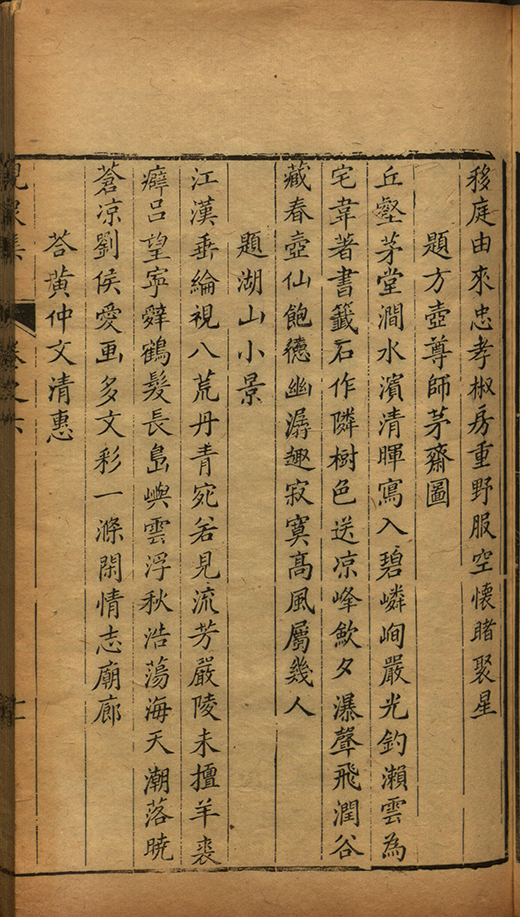 移庭由來忠孝椒房重野服空懷睹聚星
題方壺尊師茅齋圖
丘壑茅堂澗水濱清暉寫入碧嶙峋嚴光釣瀨雲為
宅韋著書籤石作隣樹色送凉峰歛夕瀑聲飛潤谷
藏春壺仙飽德幽潺趣寂寞高風屬幾人
題湖山小景
江漢垂綸視八荒丹青宛若見流芳嚴陵未擅羊裘
癖呂望寧辭鶴髮長島嶼雲浮秋浩蕩海天潮落曉
蒼凉劉侯愛画多文彩一滌閑情志廟廊
荅黃仲文清惠
卷之六